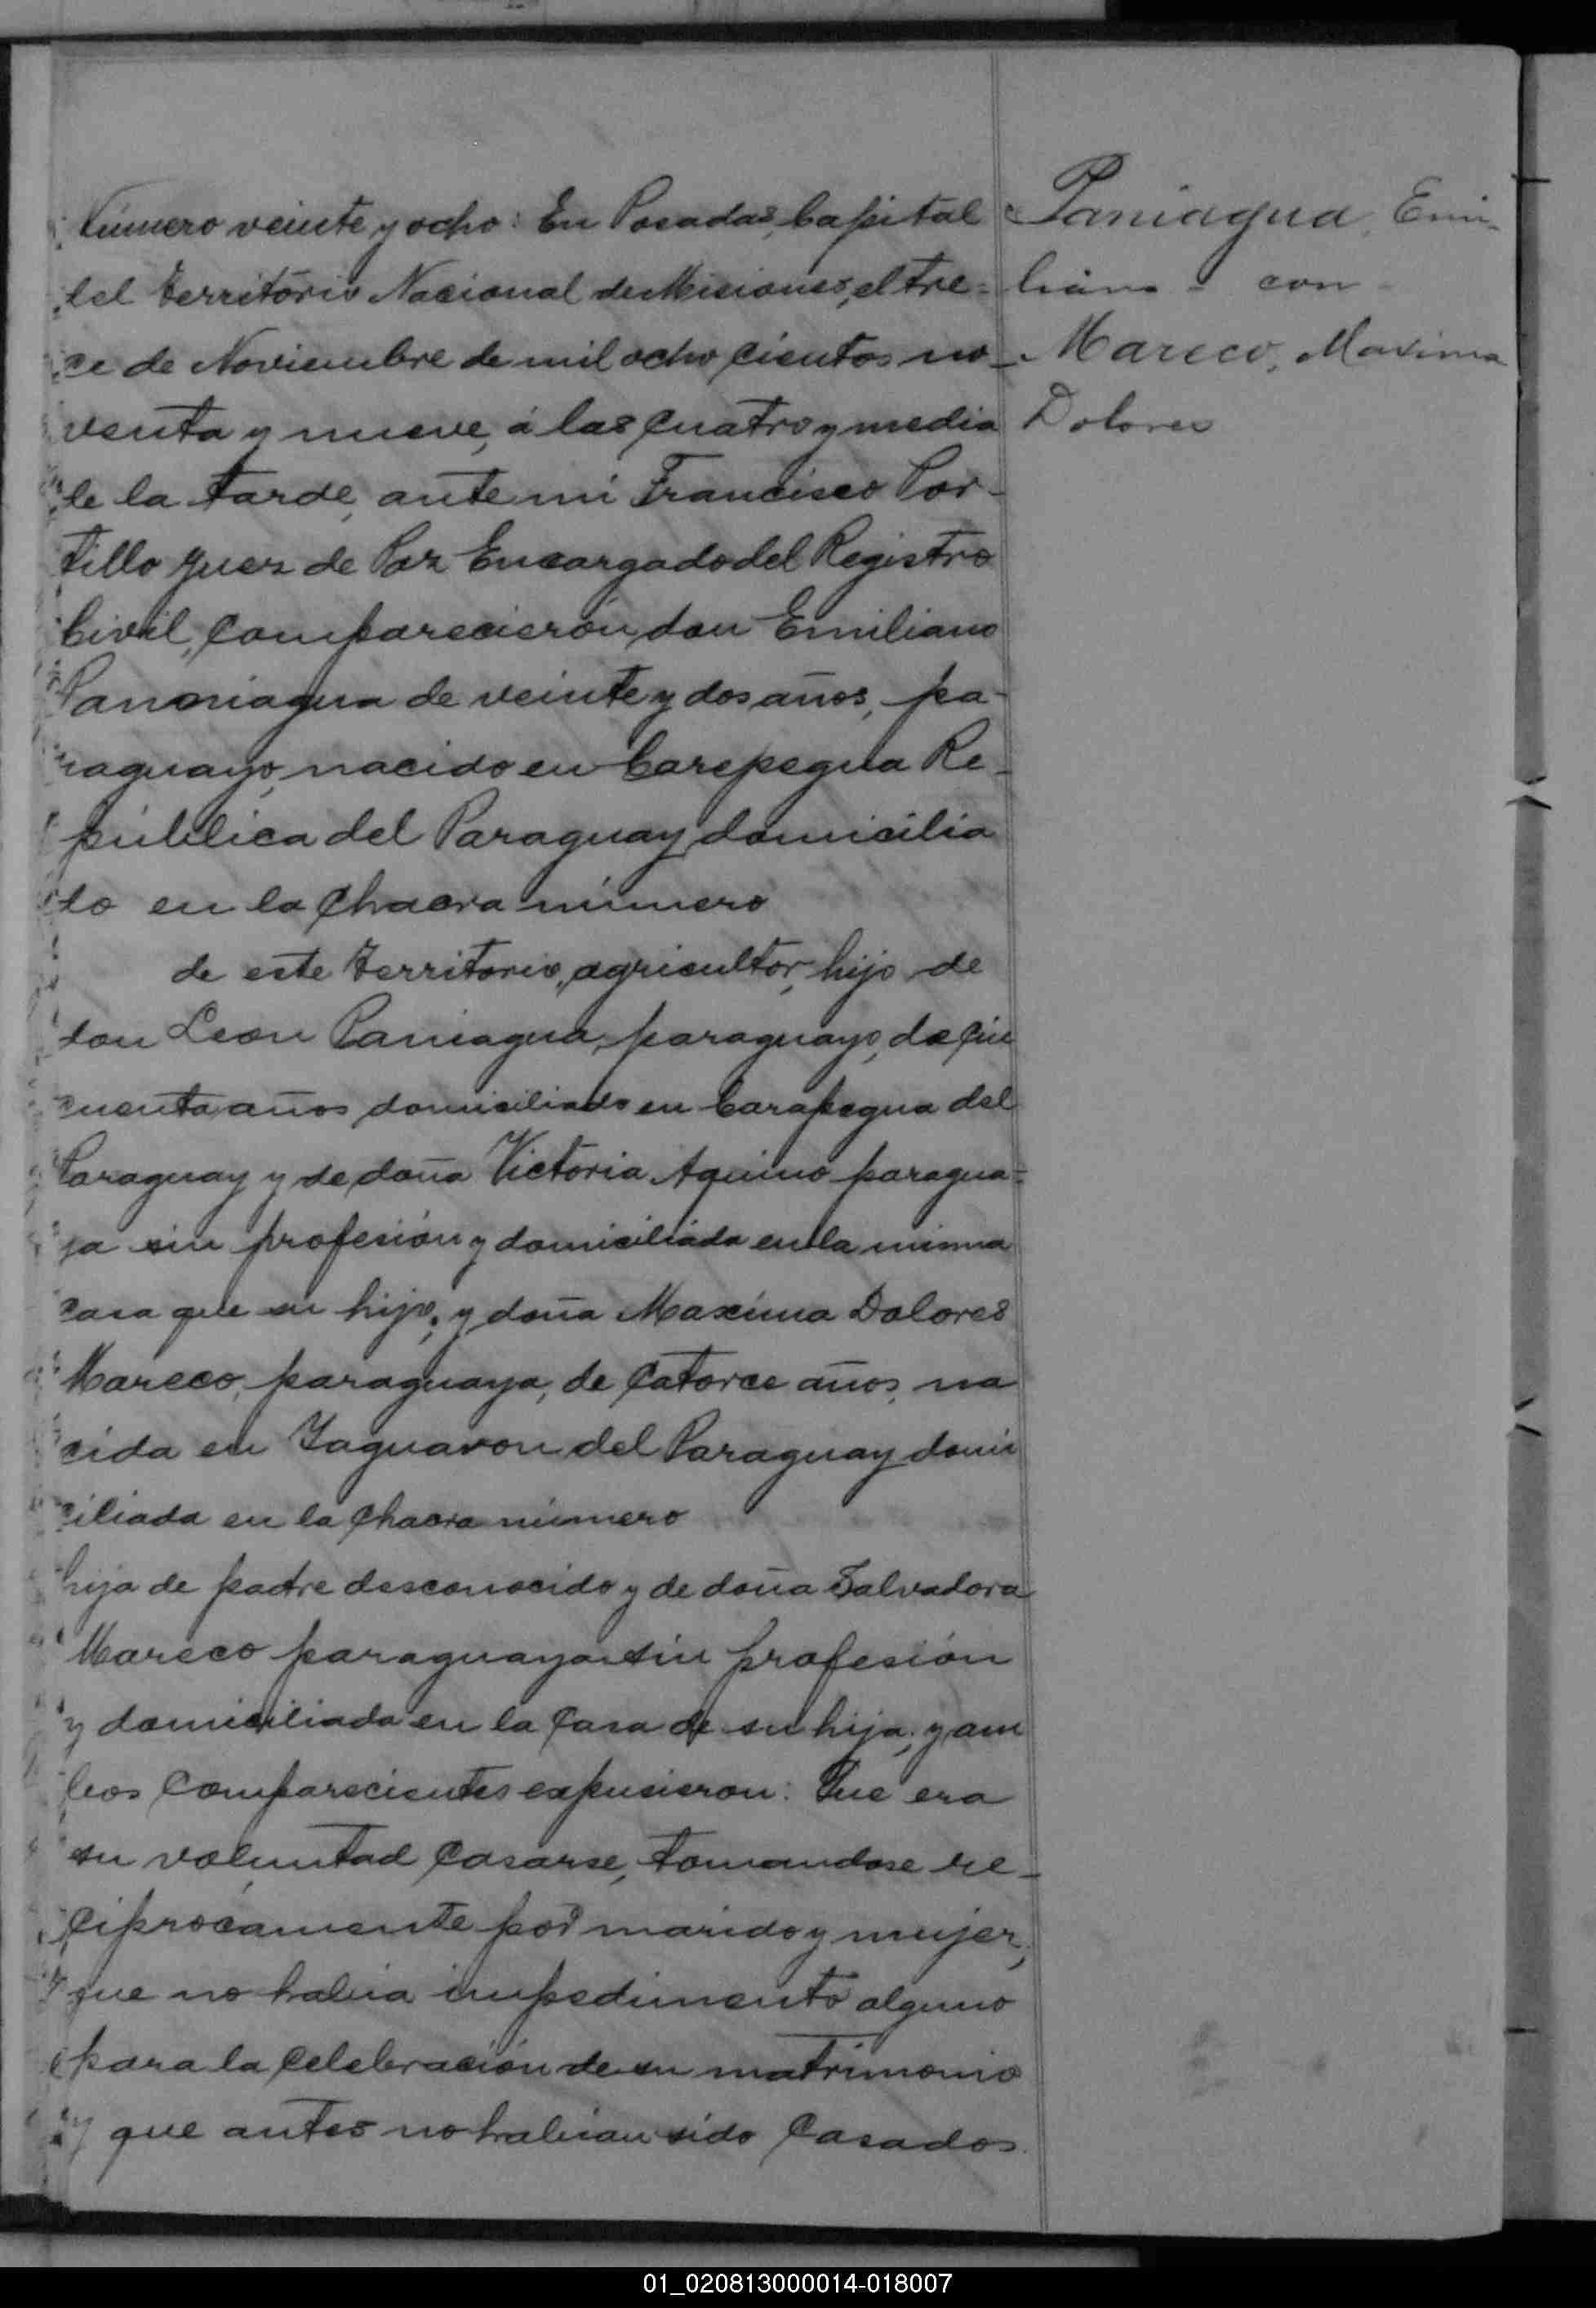 Número veinte y ocho: En Posadas, Capital
del Territorio Nacional de Misiones, el tre=
ce de Noviembre de mil ocho cientos no-
venta y nueve, á las cuatro y media
de la tarde, ante mi Francisco Por-
tillo Juez de Paz Encargado del Registro
Civil, comparecieron, don Emiliano
Panoniagua de veinte y dos años, pa-
raguayo, nacido en Carepegua Re-
pública del Paraguay, domicilia
do en la chacra número
de este territorio, agricultor, hijo de
don Leon Paniagua, paraguayo, de cin
cuenta años domiciliado en Carapegua del
Paraguay y de doña Victoria Aquino paragua=
ya sin profesión y domiciliada en la misma
casa que su hijo; y doña Maxima Dolores
Mareco, paraguaya, de catorce años, na
cida en Yaguaron del Paraguay domi
ciliada en la chacra número
hija de padre desconocido y de doña Salvadora
Mareco paraguaya sin profesión
y domiciliada en la casa de su hija; y am
bos comparecientes expusieron: Que era
su voluntad casarse, tomandose re-
ciprocamente por marido y mujer;
que no habia impedimento alguno
para la celebración de su matrimonio
y que antes no habian sido casados.
Paniagua, Emi-
liano - con -
Mareco, Maxima
Dolores
01_020813000014-018007